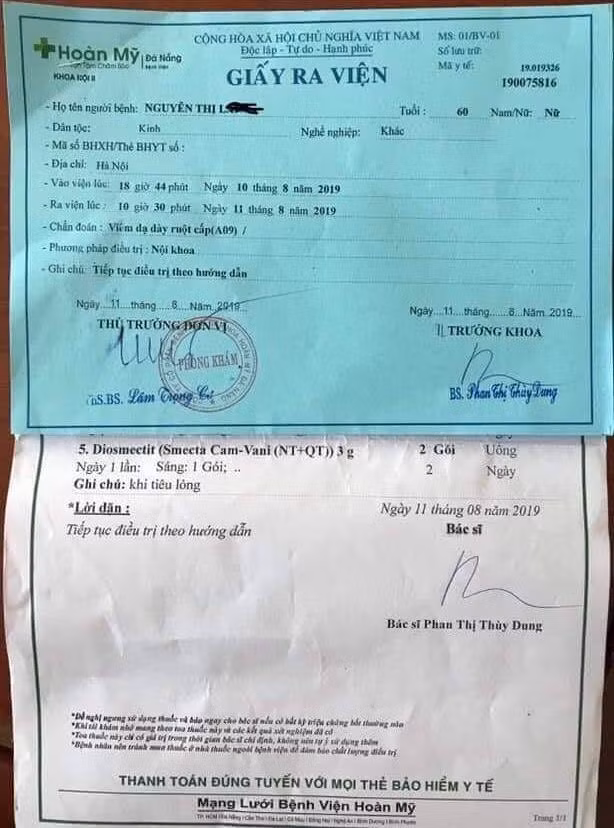 Hoàn Mỹ Đà Nẵng
Bệnh viện
KHOA NỘI II
CỘNG HÒA XÃ HỘI CHỦ NGHĨA VIỆT NAM
Độc lập - Tự do - Hạnh phúc
GIẤY RA VIỆN
MS: 01/BV-01
Số lưu trữ:
Mã y tế: 19.019326
190075816
- Họ tên người bệnh: NGUYỄN THỊ Tuổi : 60 Nam/Nữ: Nữ
- Dân tộc: Kinh Nghề nghiệp: Khác
- Mã số BHXH/Thẻ BHYT số :
- Địa chỉ: Hà Nội
- Vào viện lúc: 18 giờ 44 phút Ngày 10 tháng 8 năm 2019
- Ra viện lúc : 10 giờ 30 phút Ngày 11 tháng 8 năm 2019
- Chẩn đoán : Viêm dạ dày ruột cấp(A09) /
- Phương pháp điều trị : Nội khoa
- Ghi chú: Tiếp tục điều trị theo hướng dẫn
Ngày...11...tháng.....8....Năm..2019...
THỦ TRƯỞNG ĐƠN VỊ
PHÒNG KHÁM
BS. Lâm Trọng
Ngày....11....tháng......8...Năm 2019...
TRƯỞNG KHOA
BS. Phan Thị Thùy Dung
5. Diosmectit (Smecta Cam-Vani (NT+QT)) 3 g 2 Gói Uống
Ngày 1 lần: Sáng: 1 Gói; .. 2 Ngày
Ghi chú: khi tiêu lỏng
*Lời dặn :
Tiếp tục điều trị theo hướng dẫn
Ngày 11 tháng 08 năm 2019
Bác sĩ
Bác sĩ Phan Thị Thùy Dung
*Đề nghị ngưng sử dụng thuốc và báo ngay cho bác sĩ nếu có bất kỳ triệu chứng bất thường nào
*Khi tái khám nhớ mang theo toa thuốc này và các kết quả xét nghiệm đã có
*Toa thuốc này chỉ có giá trị trong thời gian bác sĩ chỉ định, không nên tự ý sử dụng thêm
*Bệnh nhân nên tránh mua thuốc ở nhà thuốc ngoài bệnh viện để đảm bảo chất lượng điều trị
THANH TOÁN ĐÚNG TUYẾN VỚI MỌI THẺ BẢO HIỂM Y TẾ
Mạng Lưới Bệnh Viện Hoàn Mỹ
Trang 1/1